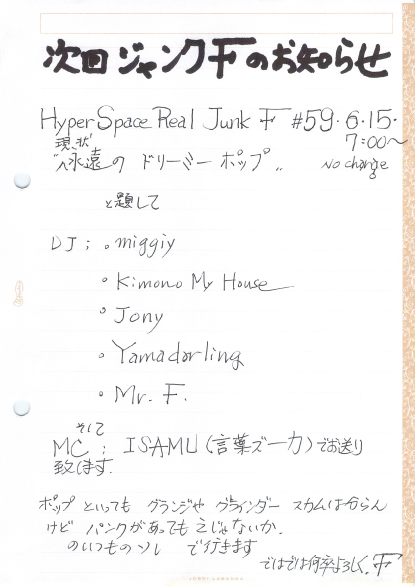 次回ジャンクFのお知らせ
Hyper Space Real Junk F #59・6・15・
7:00〜
現状
"永遠の ドリーミーポップ"
No charge
と題して
DJ; 。miggiy
。Kimono My House
。Jony
。Yamadarling
。Mr. F.
そして
MC; ISAMU(言葉ズーカ)でお送り
致します.
ポップ といっても グランジや グラインダー スカムは分らん
けど パンクがあっても えじゃないか.
のいつものソレ で行きます
ではでは何卒よろしく.F